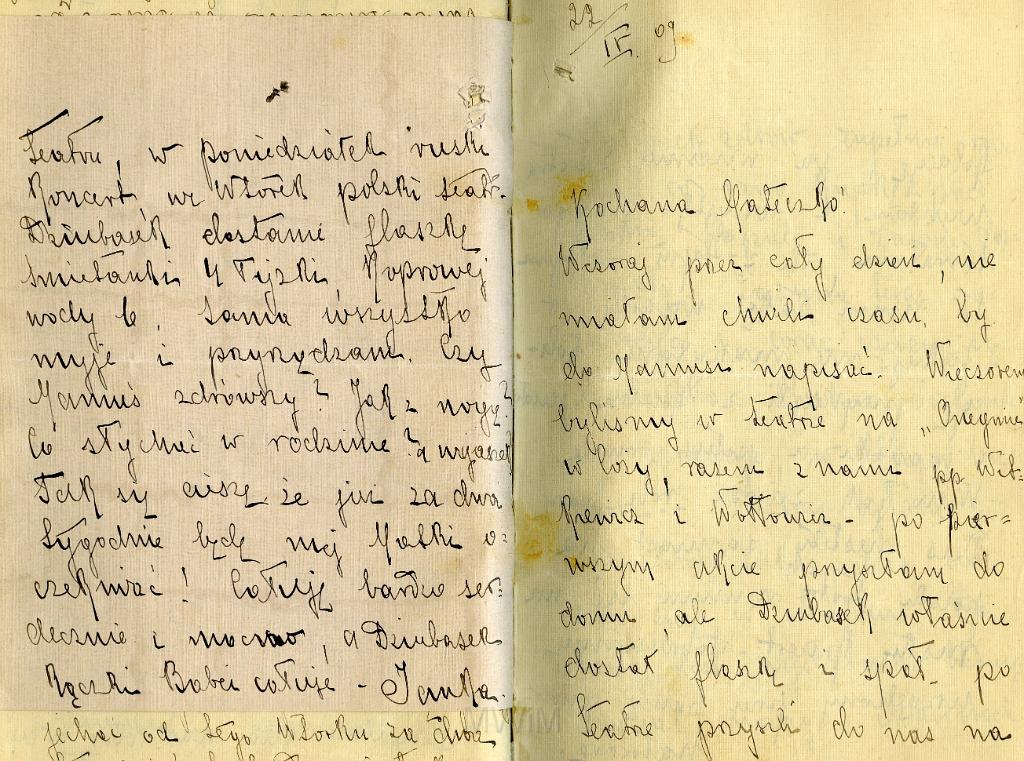 Teatru, w poniedziałek ruski
Koncert, we Wtorek polski teatr.
Dziubasek dostanie flaszkę
śmietanki 4 łyżki, Koprowej
wody 6, sama wszystko
myję i przyrządzam. Czy
Mamuś zdrówszy? Jak z nogą?
Co słychać w rodzinie?
Tak się cieszę że już za dwa
tygodnie będę mej Matki o=
czekiwać! Całuję bardzo ser=
decznie i mocno, a Dziubasek
Rączki Babci całuje - Janka.
jechać od tego Wtorku za dwa
22/IV. 09
Kochana Mateczko!
Wczoraj przez cały dzień, nie
miałam chwili czasu, by
do Mamusi napisać. Wieczorem
byliśmy w teatrze na „Oneginie"
w loży, razem z nami pp. Wit=
kiewicz i - po pier=
wszym akcie przyszłam do
domu, ale Dziubasek właśnie
dostał flaszkę i spał. po
teatrze przyszli do nas na